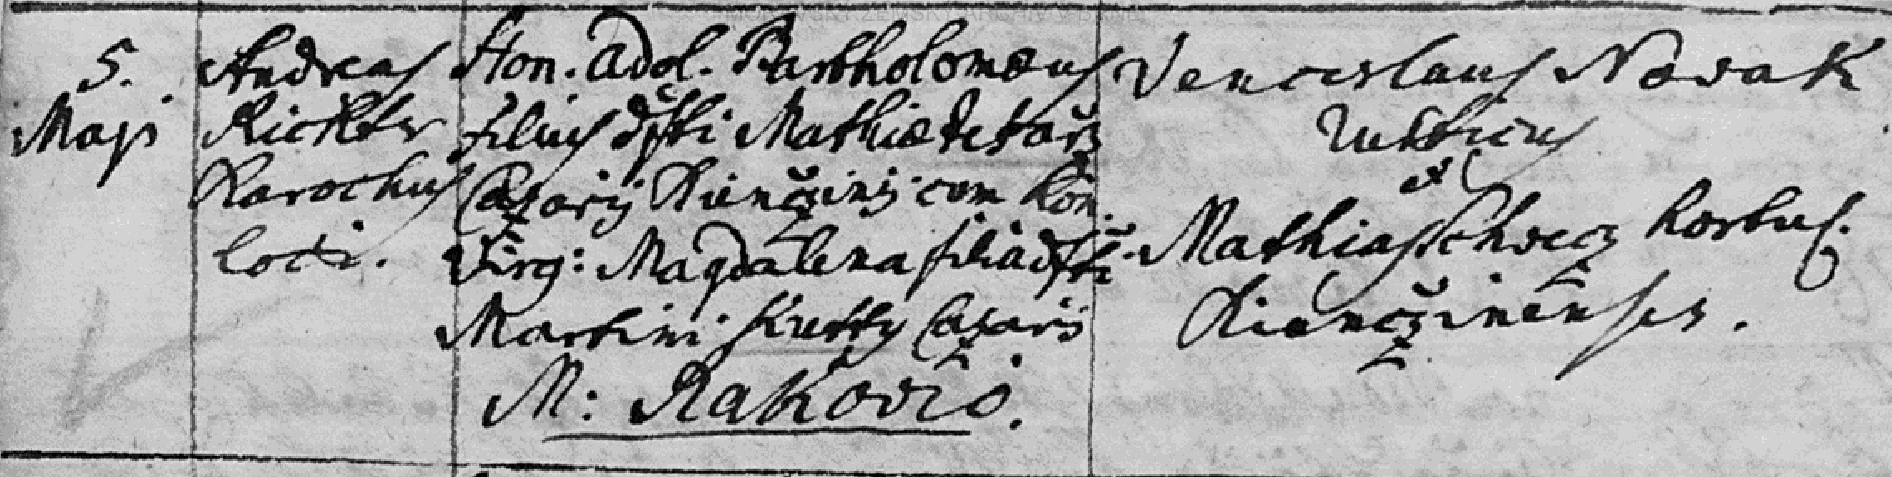 5.
Maji
Andreas
Richter
Parochus
loci.
Hon. adol. Bartholomæus
filius dfti Mathiæ
Casarij cum hon.
Virg: Magdalena filia dfti
Martini Kutty Casarij
M: Rakoviÿ.
Venceslaus Novak
Rusticus
et
Mathias Schvecz hortul.